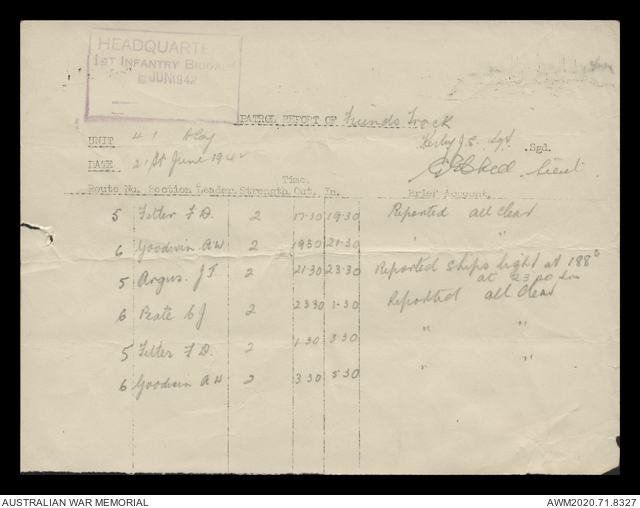 HEADQUARTERS
1ST INFANTRY BRIGADE
JUN 1942
PATROL REPORT OF Friends Track
UNIT 41 Bay
Kerby J.E. Sgt. Sgd.
DATE 21st June 1942
Lieut.
Time.
Route No. Section Leader. Strength. Out. In. Brief Account.
5 Fitter F D. 2 17.30 19.30 Reported all clear
6 Goodwin A W 2 1930 21-30 " "
5 Argus. J T. 2 21.30 23.30 Reported ships light at 188°
at 2300 hrs
6 Peate C J 2 23 30 1.30 Reported all clear
5 Fitter F D. 2 1.30 3.30 " "
6 Goodwin A W 2 3.30 5.30 " "
AUSTRALIAN WAR MEMORIAL
AWM2020.71.8327